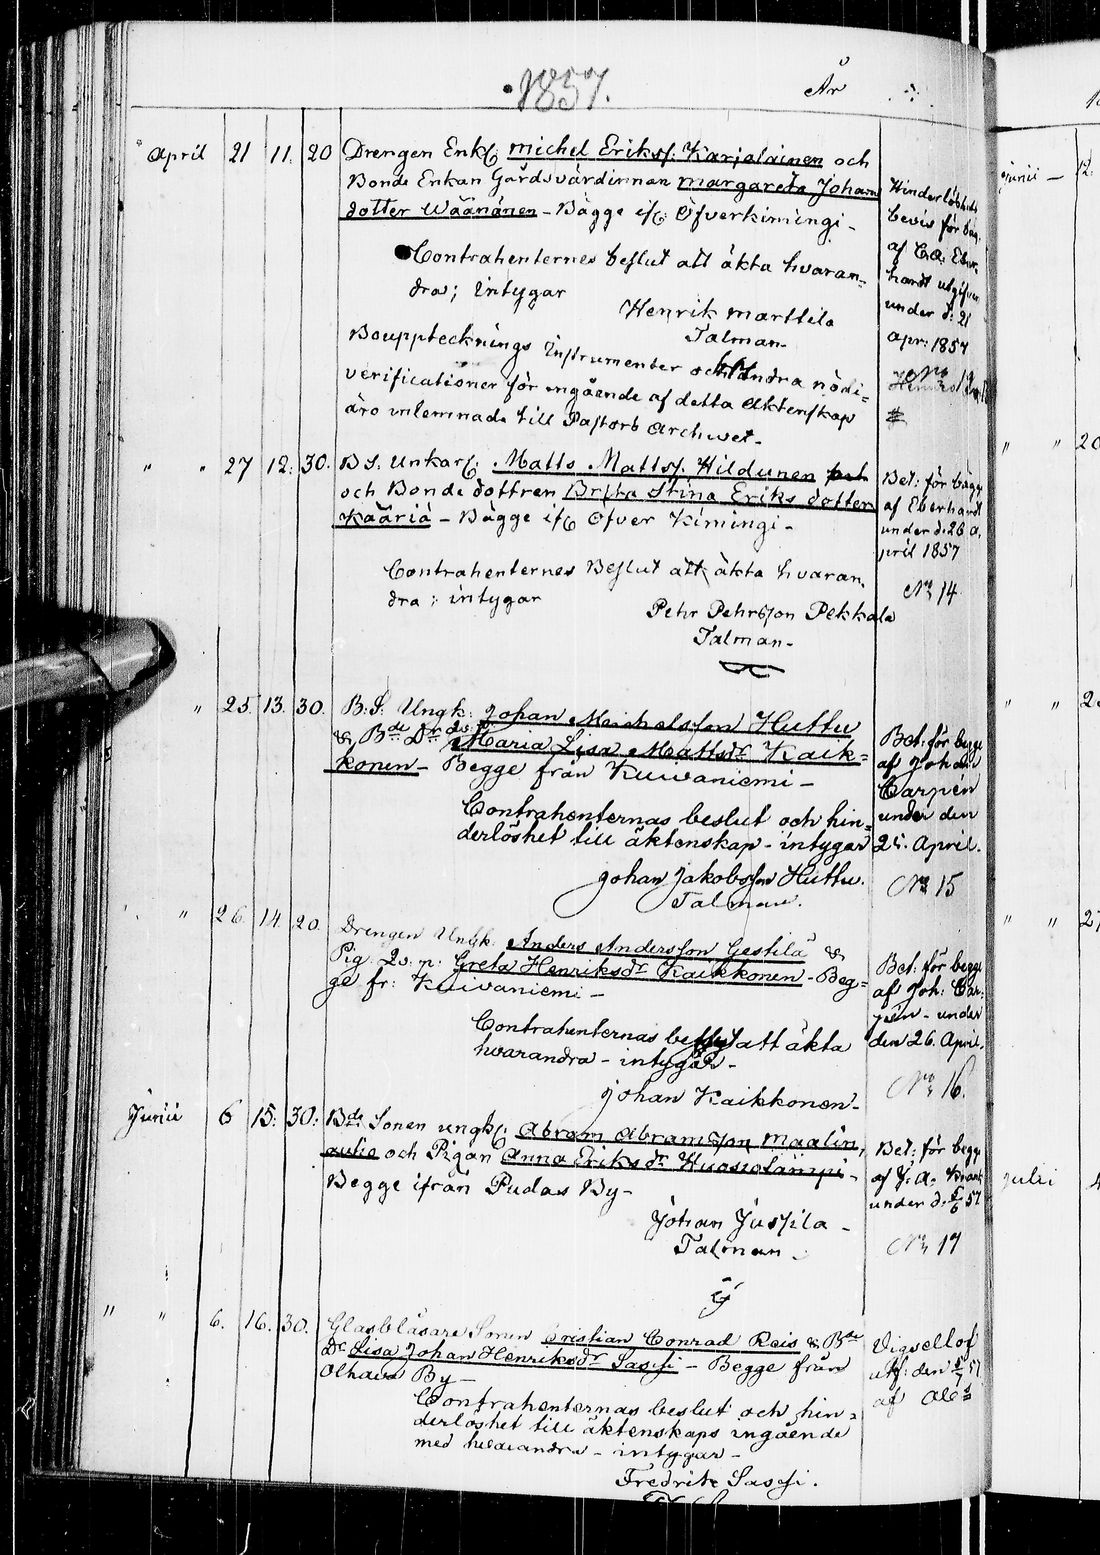 1857. År
April 21 11. 20 Drengen Enkl: Michel Erikss: Karjalainen och
Bonde Enkan Gårdsvärdinnan Margareta Johans
dotter Wäänänen - Bägge ifr: Öfverkimingi -
Contrahenternes beslut att äkta hvaran=
dra; intygar
Henrik Marttila
Talman -
Bouppteknings Instrumenter och andra nödi=
verificationer för ingående af detta äktenskap
äro inlemnade till Pastors Archivet -
Hinderlöshets
bevis för beg.
af C.A. Eber
hardt utgifven
under d: 21
Apr: 1857
" " 27 12. 30. B S. Unkarl: Matts Mattss. Hildunen
och Bonde dottren Brita Stina Eriks dotter
Kääriä - Bägge ifr Öfver Kimingi -
Contrahenternes Beslut att äkta hvaran
dra; intygar
Pehr Pehrsson Pekkala
Talman -
Bet: för bägge
af Eberhardt
under d. 26 A,
pril 1857
No 14
" 25. 13. 30. B: S. Ungk: Johan Michelsson Huttu
& Bde Dr Maria Lisa Mattsdr Kaik=
konen - Begge från Kuivaniemi -
Contrahenternas beslut och hin=
derlöshet till äktenskap - intygar
Johan Jakobsson Huttu.
Talman.
Bet: för begge
af Johan
Carpén
under den
25. April.
No 15
" 26. 14. 20. Drengen Ungk. Anders Andersson Gestilä &
Pig. Qv. p: Greta Henriksdr Kaikkonen - Beg=
ge fr: Kuivaniemi -
Contrahenternas beslut att äkta
hvarandra - intygar -
Johan Kaikkonen -
Bet: för begge
af Joh: Car=
pén - under
den 26. April.
No 16.
Junii 6 15: 30: Bde Sonen ungk: Abram Abramsson Maalin,
autio och Pigan Anna Eriks dr Huosiolampi -
Begge ifrån Pudas By -
Johan Jussila -
Talman -
Bet: för begge
under d. 5/6 57
No 17
" " 6. 16. 30. Glasblåsare Sonen Cristian Conrad Reis & Bde
Dr Lisa Johan Henriksdr Sassi - Begge från
Olhava By -
Contrahenternas beslut och hin=
derlöshet till äktenskaps ingående
med hvarandra - intygar -
Fredrik Sassi.
Vigsellof
utf: den 5/7 57
af
Junii - 12.
" " 20
" " 2
" " 27
Julii 4